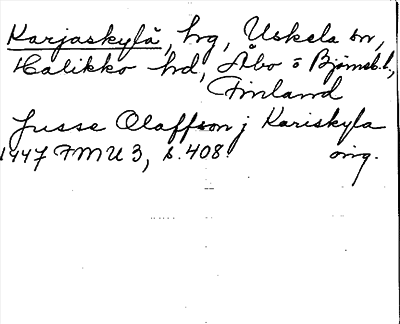 Karjaskylä, hg, Uskela sn,
Halikko hd, Åbo o Björneb. l.,
Finland
Jusse Olaffson j Kariskyla
1447 FMU 3, s. 408. orig.